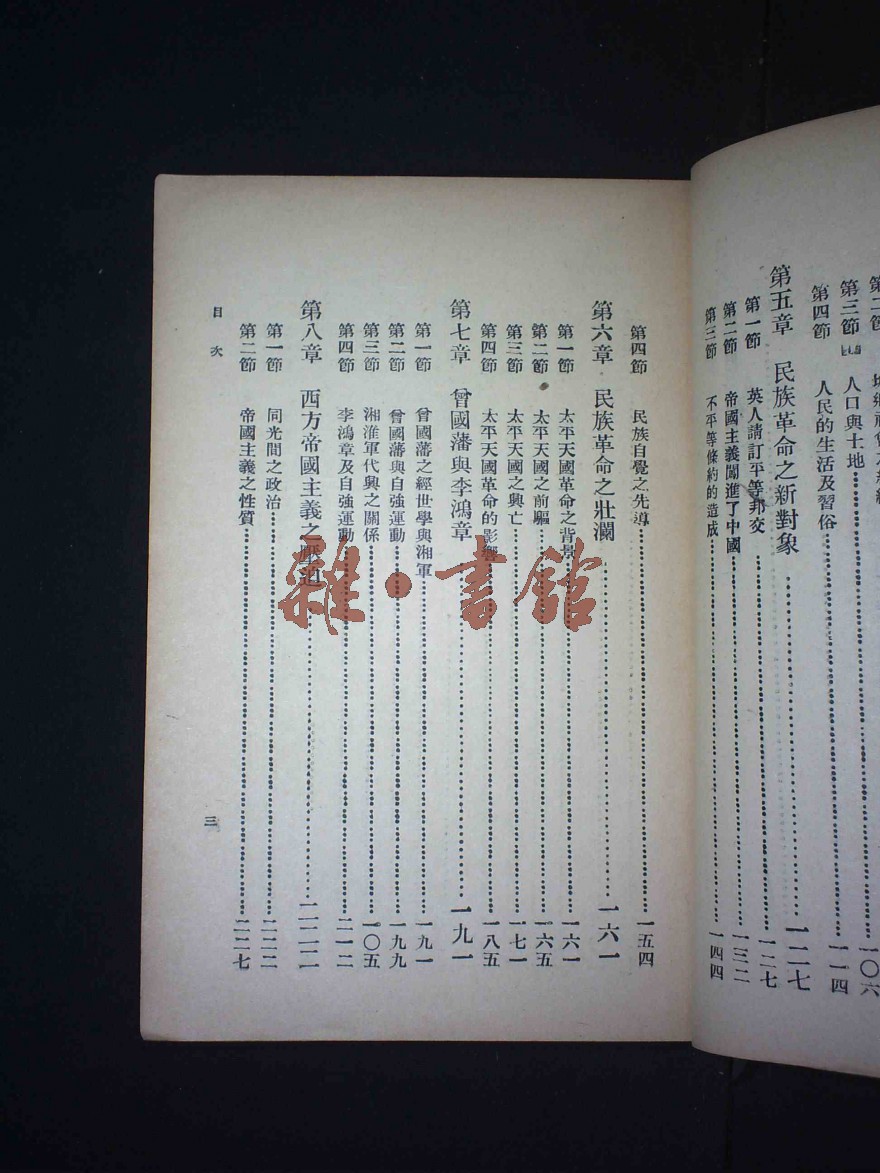 第二節
第三節 人口與土地……一〇六
第四節 人民的生活及習俗……一一四
第五章 民族革命之新對象……一二七
第一節 英人請訂平等邦交……一二七
第二節 帝國主義闖進了中國……一三二
第三節 不平等條約的造成……一四四
第四節 民族自覺之先導……一五四
第六章 民族革命之壯瀾……一六一
第一節 太平天國革命之背景……一六一
第二節 太平天國之前驅……一六五
第三節 太平天國之興亡……一七一
第四節 太平天國革命的影響……一八五
第七章 曾國藩與李鴻章……一九一
第一節 曾國藩之經世學與湘軍……一九一
第二節 曾國藩與自強運動……一九九
第三節 湘淮軍代興之關係……一〇五
第四節 李鴻章及自強運動……二一二
第八章 西方帝國主義之壓迫……二二二
第一節 同光間之政治……二二二
第二節 帝國主義之性質……二二七
目次
三
雜·書館